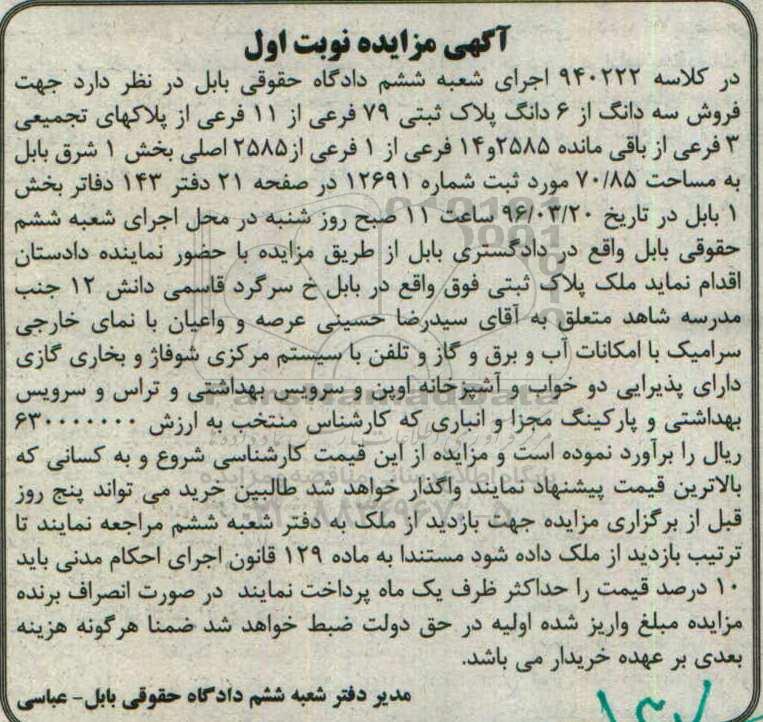 آگهی مزایده نوبت اول
در کلاسه ۹۴۰۲۲۲ اجرای شعبه ششم دادگاه حقوقی بابل در نظر دارد جهت
فروش سه دانگ از ۶ دانگ پلاک ثبتی ۷۹ فرعی از ۱۱ فرعی از پلاکهای تجمیعی
۳ فرعی از باقی مانده ۲۵۸۵و۱۴ فرعی از ۱ فرعی از۲۵۸۵ اصلی بخش ۱ شرق بابل
به مساحت ۷۰/۸۵ مورد ثبت شماره ۱۲۶۹۱ در صفحه ۲۱ دفتر ۱۴۳ دفاتر بخش
۱ بابل در تاریخ ۹۶/۰۳/۲۰ ساعت ۱۱ صبح روز شنبه در محل اجرای شعبه ششم
حقوقی بابل واقع در دادگستری بابل از طریق مزایده با حضور نماینده دادستان
اقدام نماید ملک پلاک ثبتی فوق واقع در بابل خ سرگرد قاسمی دانش ۱۲ جنب
مدرسه شاهد متعلق به آقای سیدرضا حسینی عرصه و واعیان با نمای خارجی
سرامیک با امکانات آب و برق و گاز و تلفن با سیستم مرکزی شوفاژ و بخاری گازی
دارای پذیرایی دو خواب و آشپزخانه اوپن و سرویس بهداشتی و تراس و سرویس
بهداشتی و پارکینگ مجزا و انباری که کارشناس منتخب به ارزش ۶۳۰۰۰۰۰۰۰۰
ریال را برآورد نموده است و مزایده از این قیمت کارشناسی شروع و به کسانی که
بالاترین قیمت پیشنهاد نمایند واگذار خواهد شد طالبین خرید می تواند پنج روز
قبل از برگزاری مزایده جهت بازدید از ملک به دفتر شعبه ششم مراجعه نمایند تا
ترتیب بازدید از ملک داده شود مستندا به ماده ۱۲۹ قانون اجرای احکام مدنی باید
۱۰ درصد قیمت را حداکثر ظرف یک ماه پرداخت نمایند در صورت انصراف برنده
مزایده مبلغ واریز شده اولیه در حق دولت ضبط خواهد شد ضمنا هرگونه هزینه
بعدی بر عهده خریدار می باشد.
مدیر دفتر شعبه ششم دادگاه حقوقی بابل- عباسی